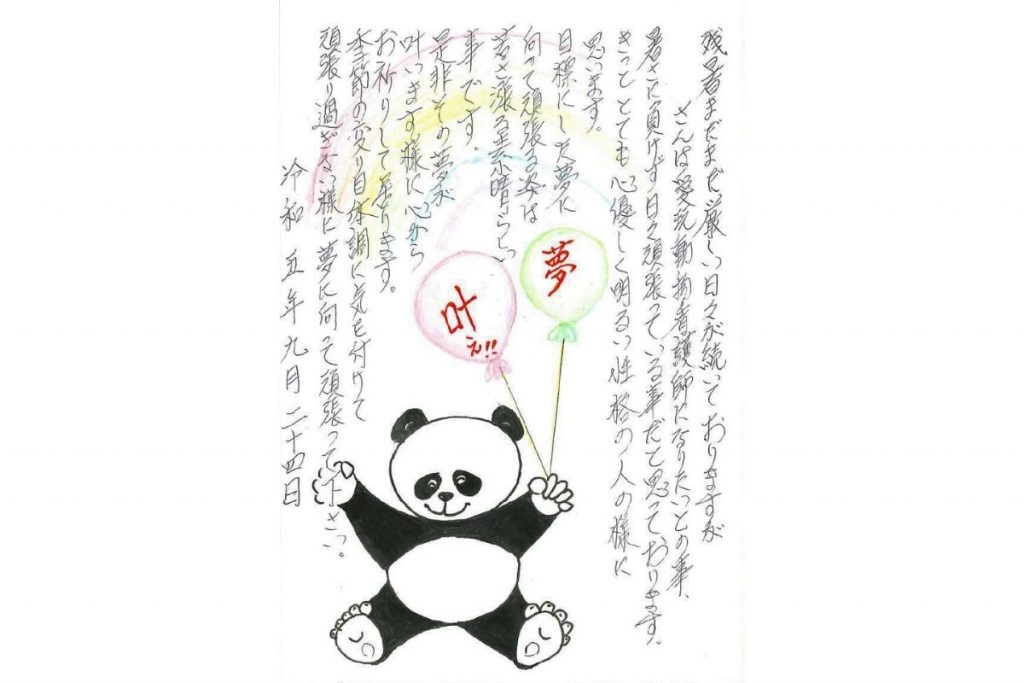 残暑まだまだ厳しい日々が続いておりますが
さんは愛玩動物看護師になりたいとの事、
暑さに負けず日々頑張っている事だと思っております。
きっととても心優しく明るい性格の人の様に
思います。
目標にした夢に
向って頑張る姿は
若さ漲る素晴らしい
事です。
是非その夢が
叶います様に心から
お祈りして居ります。
季節の変り目体調に気を付けて
頑張り過ぎない様に夢に向って頑張って下さい。
令和五年九月二十四日
夢
叶え!!